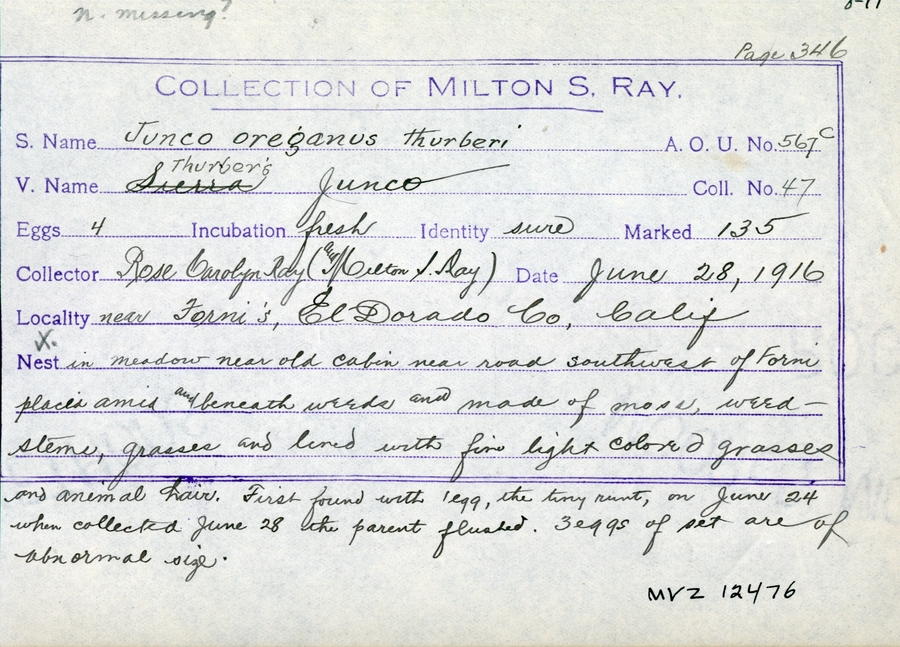 n. missing?
8-11
Page 346
COLLECTION OF MILTON S. RAY.
S. Name Junco oreganus thurberi A. O. U. No. 567c
Thurber's
V. Name Sierra Junco Coll. No. 47
Eggs 4 Incubation fresh Identity sure Marked 135
Collector Rose Carolyn Ray (and Milton S. Ray) Date June 28, 1916
Locality near Forni's, El Dorado Co, Calif
x.
Nest in meadow near old cabin near road southwest of Forni
placed amid and beneath weeds and made of moss, weed-
stems, grasses and lined with fine light colored grasses
and animal hair. First found with 1 egg, the tiny runt, on June 24
when collected June 28 the parent flushed. 3 eggs of set are of
abnormal size.
MVZ 12476